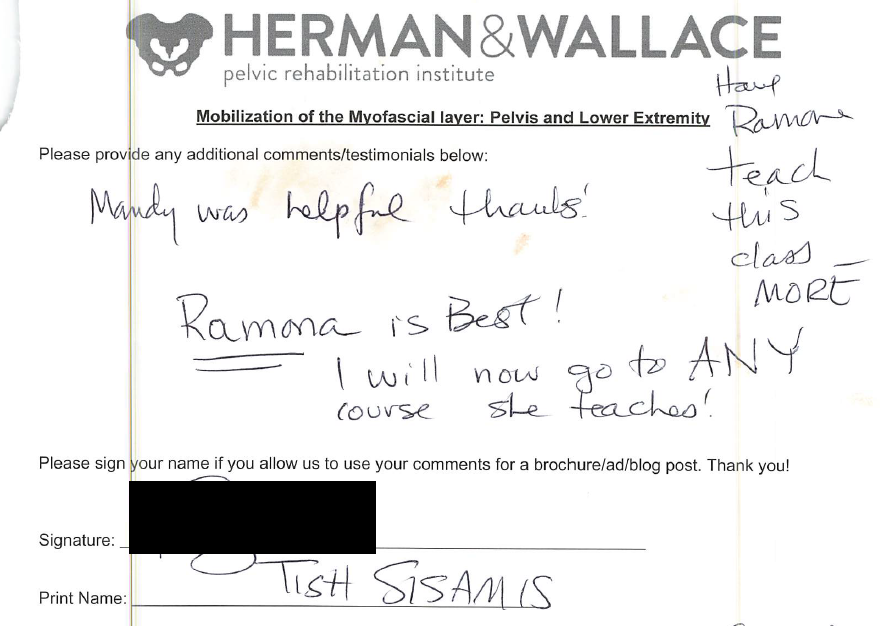 HERMAN&WALLACE
pelvic rehabilitation institute
Mobilization of the Myofascial layer: Pelvis and Lower Extremity
Have
Ramona
teach
this
class –
MORE
Please provide any additional comments/testimonials below:
Mandy was helpful thanks!
Ramona is Best!
I will now go to ANY
course she teaches!
Please sign your name if you allow us to use your comments for a brochure/ad/blog post. Thank you!
Signature:
Print Name: TISH SISAMIS